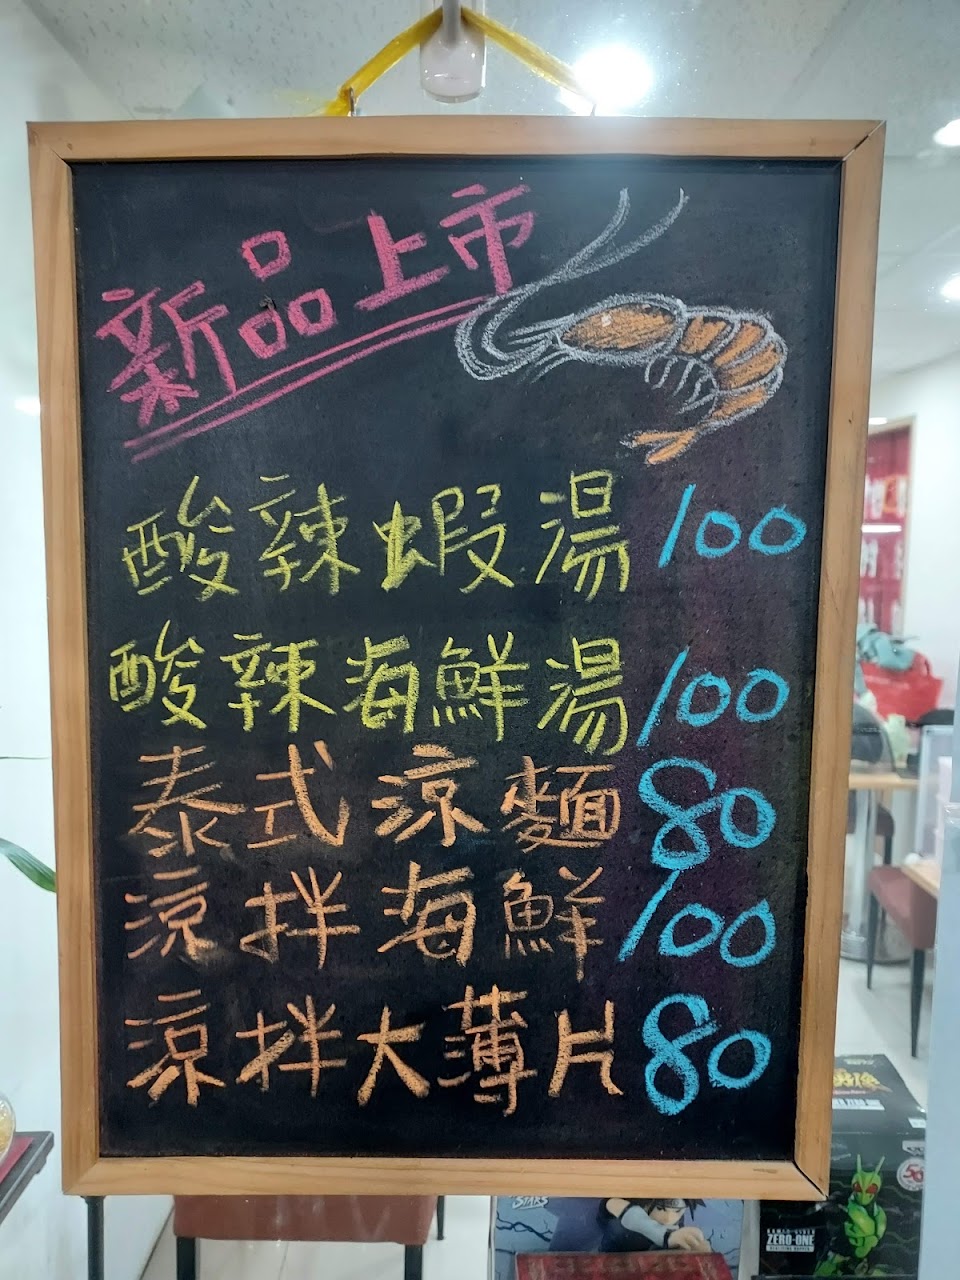 新品上市
酸辣蝦湯 100
酸辣海鮮湯 100
泰式涼麵 80
涼拌海鮮 100
涼拌大薄片 80
STARS
ZERO-ONE
50